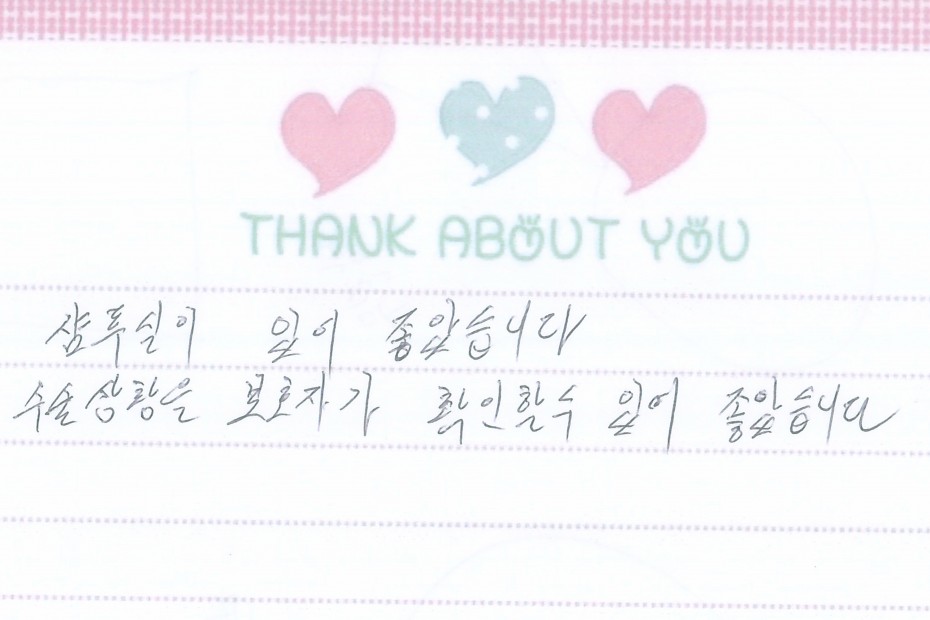 THANK ABOUT YOU
샴푸실이 있어 좋았습니다
수술상황을 보호자가 확인할수 있어 좋았습니다